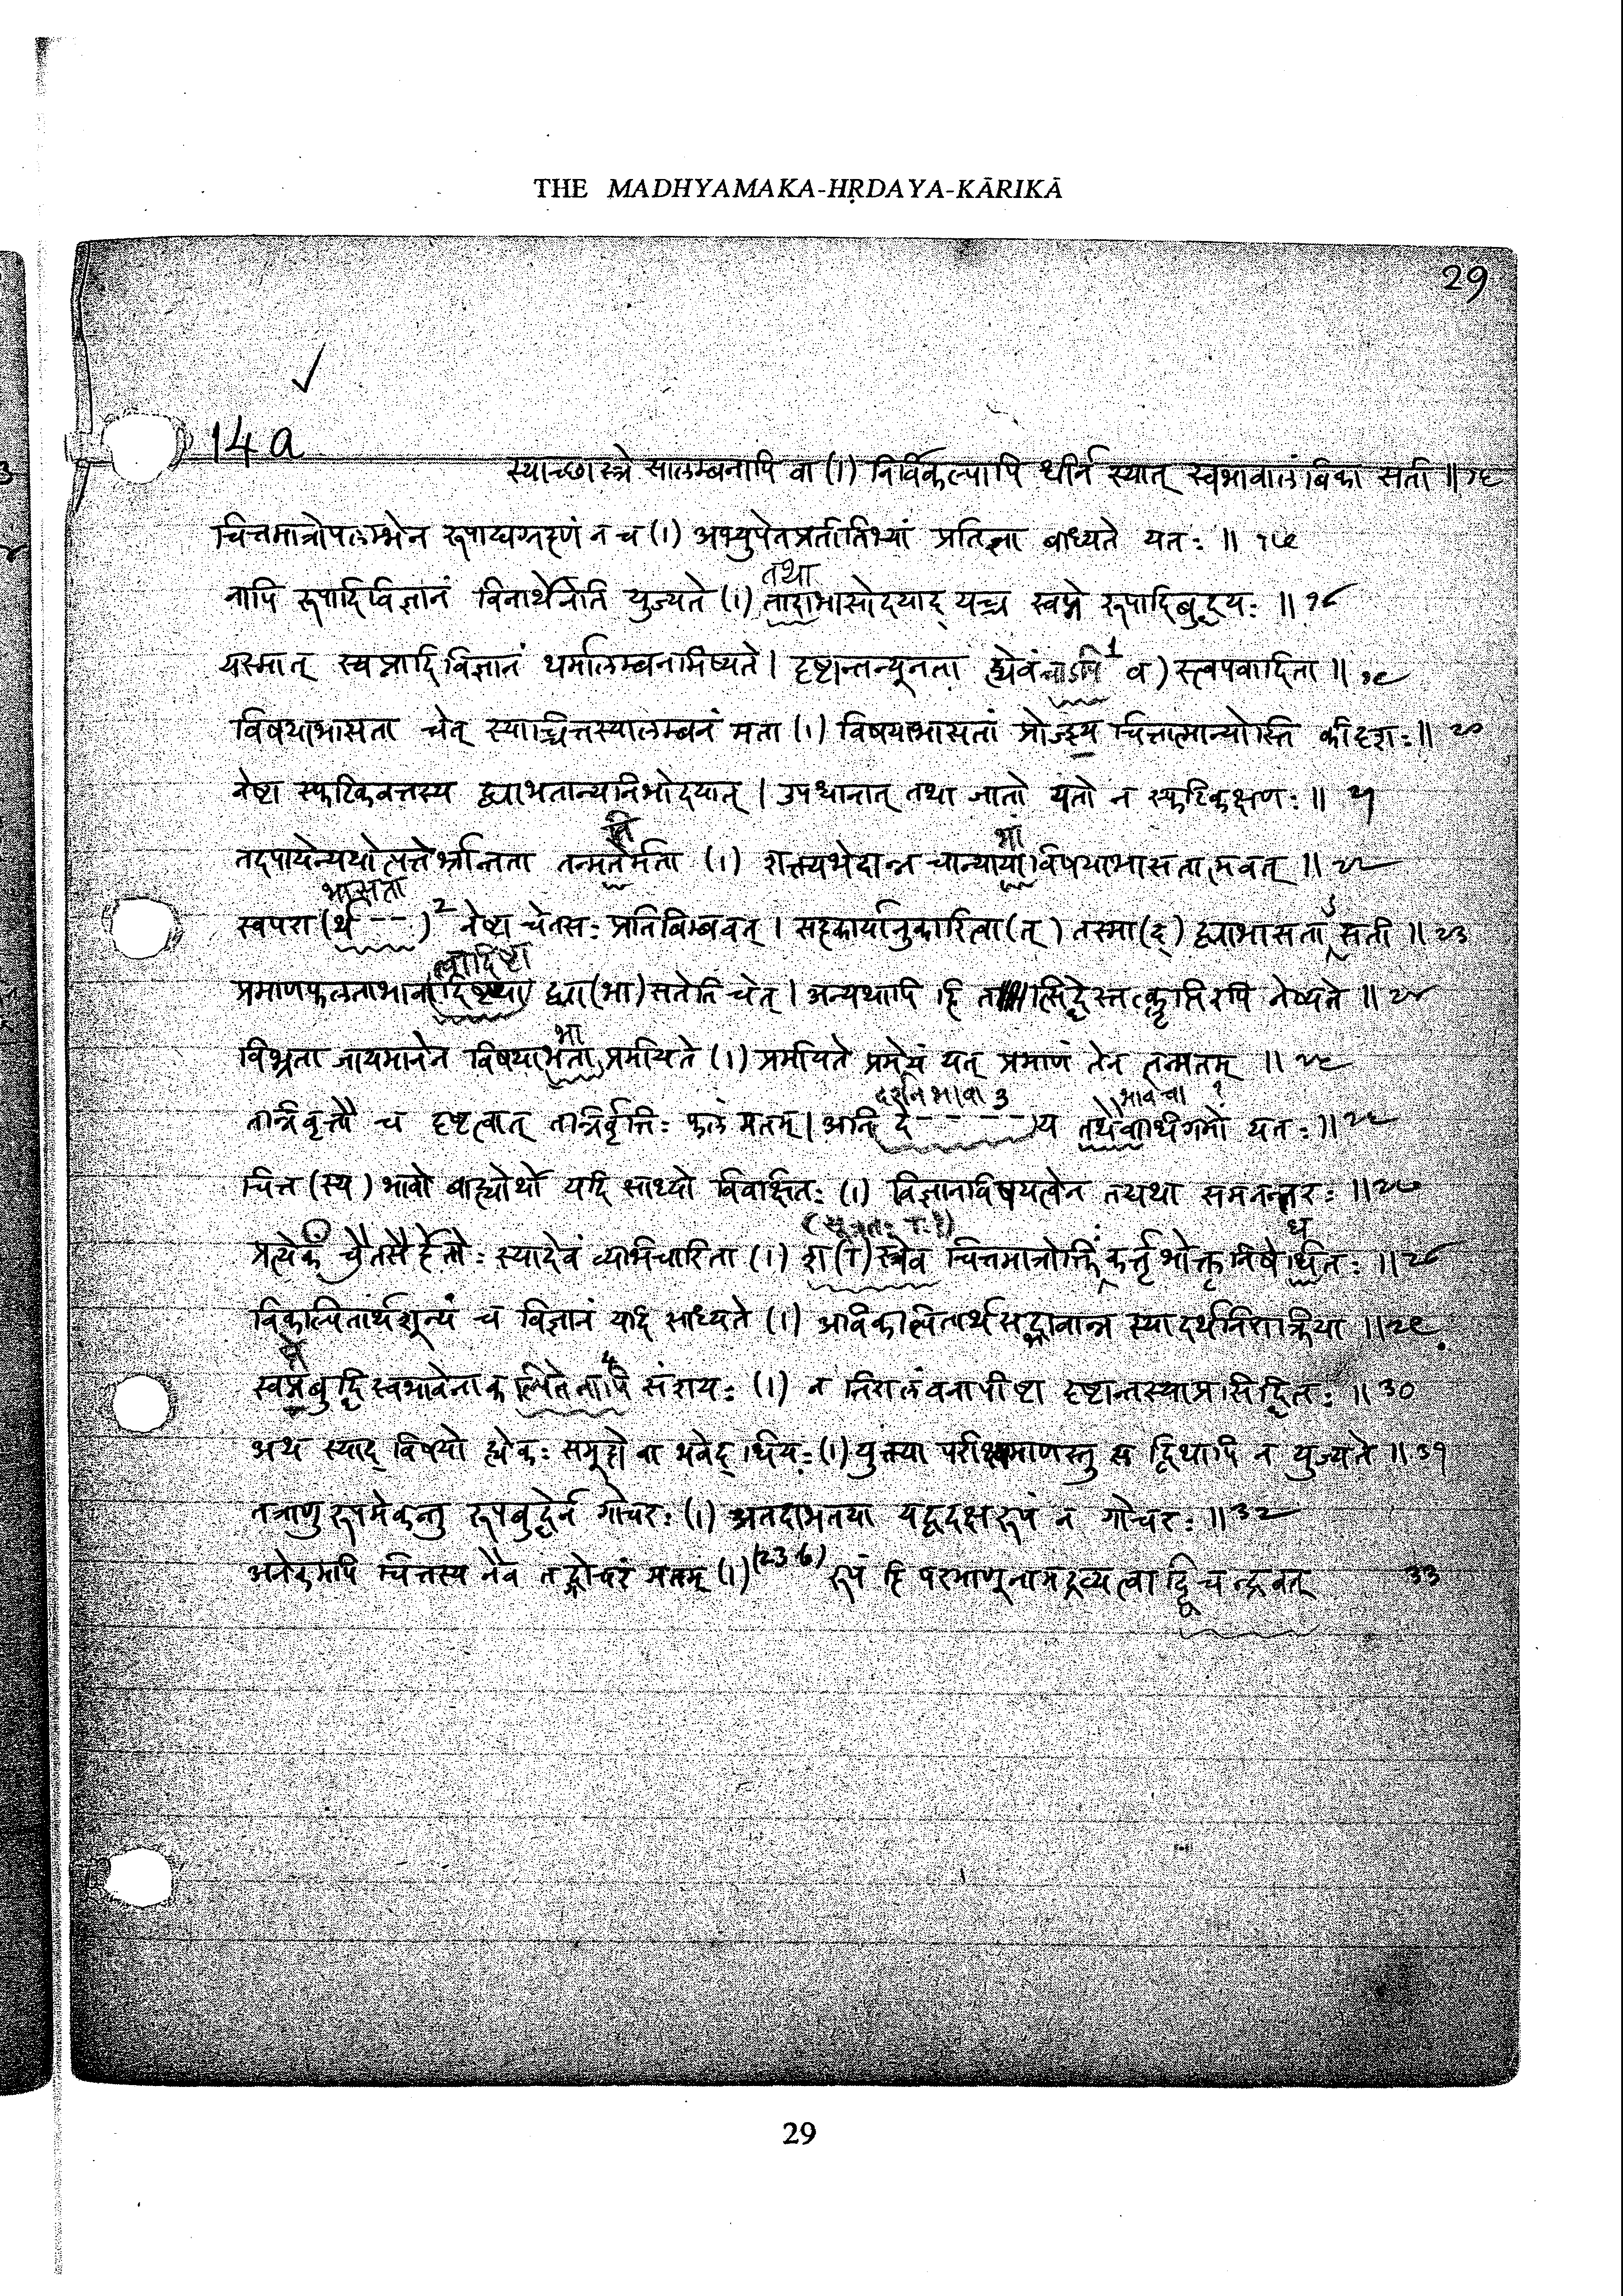 THE MADHYAMAKA-HṚDAYA-KĀRIKĀ
29
14 a
स्याच्छास्त्रे सालम्बनापि वा (।) निर्विकल्पापि धीर्न स्यात् स्वभावालंबिका सती ॥ १६
चित्तमात्रोपलम्भेन रूपाद्यग्रहणं न च (।) अभ्युपेतप्रतीतिभ्यां प्रतिज्ञा बाध्यते यतः ॥ १७
तथा
नापि रूपादिविज्ञानं विनार्थेनेति युज्यते (।) तादाभासोदयाद् यद्वत् स्वप्ने रूपादिबुद्धयः ॥ १८
यस्मात् स्वप्नादिविज्ञानं धर्मालम्बनमिष्यते । दृष्टान्तन्यूनता ह्येवं चाऽपि 1 व) स्त्वपवादिता ॥ १९
विषयाभासता चेत् स्याच्चित्तस्यालम्बनं मता (।) विषयाभासतां प्रोज्झ्य चित्तात्मान्योस्ति कीदृशः ॥ २०
नेष्टा स्फटिकवत्तस्य द्व्याभतान्यनिभोदयात् । उपधानात् तथा जातो यतो न स्फटिकक्षणः ॥ २१
ति भां
तदपायेन्ययोत्पत्तेर्भ्रान्तता तन्मतेर्मता (।) शक्त्यभेदान्न चान्याया विषयाभासतात्मवत् ॥ २२
भासता
स्वपरा (र्थ -- ) 2 नेष्टा चेतसः प्रतिबिम्बवत् । सहकार्यानुकारित्वा (त्) तस्मा (द्) द्व्याभासता सती ॥ २३
त्वादिष्टा
प्रमाणफलताभावादिष्टया द्व्या (भा) सतेति चेत् । अन्यथापि हि तत्सिद्धेस्तत्क्लृप्तिरपि नेष्यते ॥ २४
भा
बिभ्रता जायमानेन विषयाभतां प्रमीयते (।) प्रमीयते प्रमेयं यत् प्रमाणं तेन तन्मतम् ॥ २५
दर्शनभावा 3 भावेवा ?
तन्निर्वृत्तौ च दृष्टत्वात् तन्निर्वृत्तिः फलं मतम् । अनि दे - - - - ) य तथैवाधिगमो यतः ॥ २६
चित्त (स्य) भावो बाह्योर्थो यदि साध्यो विवक्षितः (।) विज्ञानविषयत्वेन तद्यथा समनन्तरः ॥ २७
ध
प्रत्येकं चैतसैर्हेतोः स्यादेवं व्यभिचारिता (।) शा (।) स्त्रेव चित्तमात्रोक्तिः कर्त्तृभोक्तृनिषेर्धतः ॥ २८
विकल्पितार्थशून्यं च विज्ञानं यदि साध्यते (।) अविकल्पितार्थसद्भावान्न स्यादर्थनिराक्रिया ॥ २९
स्वप्नबुद्धिस्वभावेनाकल्पितेनापि 4 संशयः (।) न निरालंबनापीष्टा दृष्टान्तस्याप्रसिद्धितः ॥ ३०
अथ स्याद् विषयो ह्येकः समूहो वा भवेद् धियः (।) युक्त्या परीक्ष्यमाणस्तु स द्विधापि न युज्यते ॥ ३१
तत्राणुरूपमेकन्तु रूपबुद्धेर्न गोचरः (।) अतदाभतया यद्वदक्षरूपं न गोचरः ॥ ३२
अनेकमपि चित्तस्य नैव तद्गोचरं मतम् (।) (23 b) रूपं हि परमाणूनामद्रव्यत्वाद्द्विचन्द्रवत् ३३
29